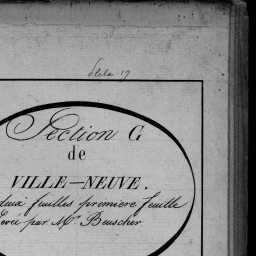 Section G
de
VILLE-NEUVE.
deux feuilles premiere feuille
levée par Mr. Beuscher